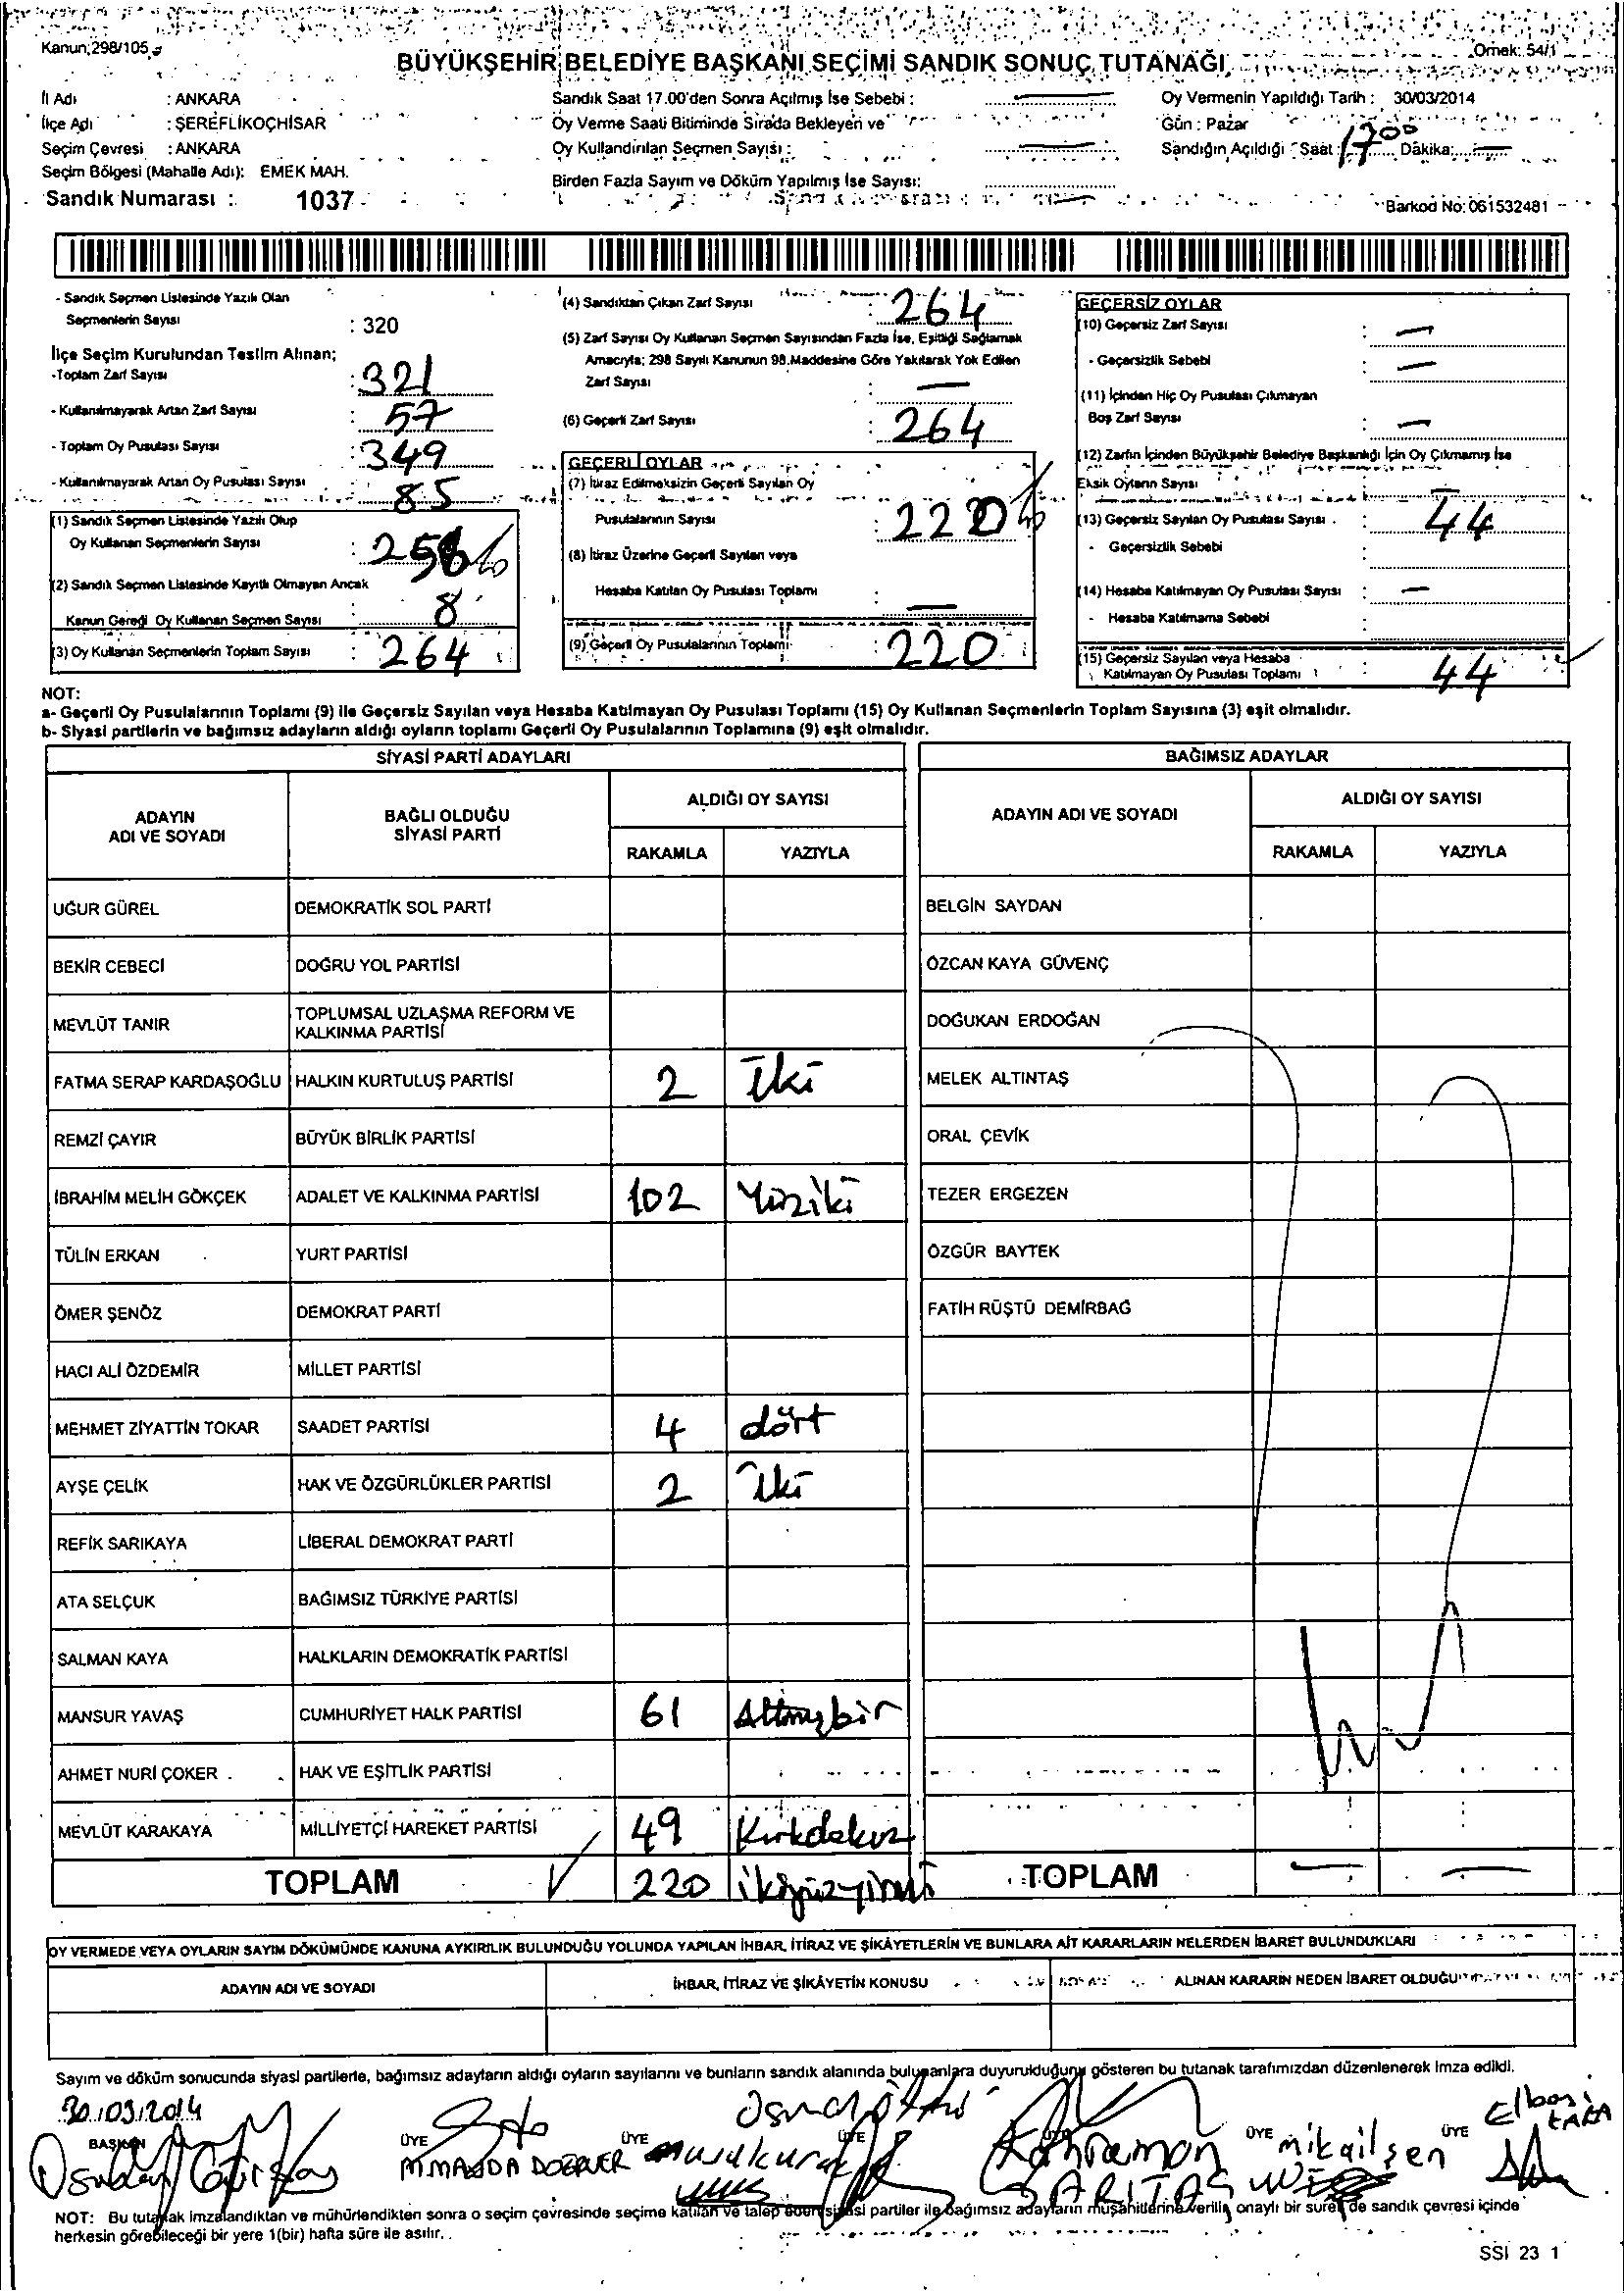 Kanun;298/105
Örnek: 54/1
BÜYÜKŞEHİR BELEDİYE BAŞKANI SEÇİMİ SANDIK SONUÇ TUTANAĞI
İl Adı : ANKARA
İlçe Adı : ŞEREFLİKOÇHİSAR
Seçim Çevresi : ANKARA
Seçim Bölgesi (Mahalle Adı): EMEK MAH.
Sandık Numarası : 1037
Sandık Saat 17.00'den Sonra Açılmış İse Sebebi :
Oy Verme Saati Bitiminde Sırada Bekleyen ve
Oy Kullandırılan Seçmen Sayısı :
Birden Fazla Sayım ve Döküm Yapılmış İse Sayısı:
Oy Vermenin Yapıldığı Tarih : 30/03/2014
Gün : Pazar
Sandığın Açıldığı Saat : 1700 Dakika:
Barkod No: 061532481
- Sandık Seçmen Listesinde Yazılı Olan
Seçmenlerin Sayısı : 320
İlçe Seçim Kurulundan Teslim Alınan;
-Toplam Zarf Sayısı : 321
- Kullanılmayarak Artan Zarf Sayısı : 57
- Toplam Oy Pusulası Sayısı : 349
- Kullanılmayarak Artan Oy Pusulası Sayısı : 85
(1) Sandık Seçmen Listesinde Yazılı Olup
Oy Kullanan Seçmenlerin Sayısı : 256
(2) Sandık Seçmen Listesinde Kayıtlı Olmayan Ancak
Kanun Gereği Oy Kullanan Seçmen Sayısı : 8
(3) Oy Kullanan Seçmenlerin Toplam Sayısı : 264
(4) Sandıktan Çıkan Zarf Sayısı : 264
(5) Zarf Sayısı Oy Kullanan Seçmen Sayısından Fazla İse, Eşitliği Sağlamak
Amacıyla; 298 Sayılı Kanunun 98.Maddesine Göre Yakılarak Yok Edilen
Zarf Sayısı : —
(6) Geçerli Zarf Sayısı : 264
GEÇERLİ OYLAR
(7) İtiraz Edilmeksizin Geçerli Sayılan Oy
Pusulalarının Sayısı : 220
(8) İtiraz Üzerine Geçerli Sayılan veya
Hesaba Katılan Oy Pusulası Toplamı : —
(9) Geçerli Oy Pusulalarının Toplamı : 220
GEÇERSİZ OYLAR
(10) Geçersiz Zarf Sayısı : —
- Geçersizlik Sebebi : —
(11) İçinden Hiç Oy Pusulası Çıkmayan
Boş Zarf Sayısı : —
(12) Zarfın İçinden Büyükşehir Belediye Başkanlığı İçin Oy Çıkmamış İse
Eksik Oyların Sayısı : —
(13) Geçersiz Sayılan Oy Pusulası Sayısı : 44
- Geçersizlik Sebebi :
(14) Hesaba Katılmayan Oy Pusulası Sayısı : —
- Hesaba Katılmama Sebebi :
(15) Geçersiz Sayılan veya Hesaba
Katılmayan Oy Pusulası Toplamı : 44
NOT:
a- Geçerli Oy Pusulalarının Toplamı (9) ile Geçersiz Sayılan veya Hesaba Katılmayan Oy Pusulası Toplamı (15) Oy Kullanan Seçmenlerin Toplam Sayısına (3) eşit olmalıdır.
b- Siyasi partilerin ve bağımsız adayların aldığı oyların toplamı Geçerli Oy Pusulalarının Toplamına (9) eşit olmalıdır.
SİYASİ PARTİ ADAYLARI
ADAYIN ADI VE SOYADI BAĞLI OLDUĞU SİYASİ PARTİ ALDIĞI OY SAYISI
RAKAMLA YAZIYLA
UĞUR GÜREL DEMOKRATİK SOL PARTİ
BEKİR CEBECİ DOĞRU YOL PARTİSİ
MEVLÜT TANIR TOPLUMSAL UZLAŞMA REFORM VE KALKINMA PARTİSİ
FATMA SERAP KARDAŞOĞLU HALKIN KURTULUŞ PARTİSİ 2 İki
REMZİ ÇAYIR BÜYÜK BİRLİK PARTİSİ
İBRAHİM MELİH GÖKÇEK ADALET VE KALKINMA PARTİSİ 102 Yüziki
TÜLİN ERKAN YURT PARTİSİ
ÖMER ŞENÖZ DEMOKRAT PARTİ
HACI ALİ ÖZDEMİR MİLLET PARTİSİ
MEHMET ZİYATTİN TOKAR SAADET PARTİSİ 4 dört
AYŞE ÇELİK HAK VE ÖZGÜRLÜKLER PARTİSİ 2 İki
REFİK SARIKAYA LİBERAL DEMOKRAT PARTİ
ATA SELÇUK BAĞIMSIZ TÜRKİYE PARTİSİ
SALMAN KAYA HALKLARIN DEMOKRATİK PARTİSİ
MANSUR YAVAŞ CUMHURİYET HALK PARTİSİ 61 Altmışbir
AHMET NURİ ÇOKER HAK VE EŞİTLİK PARTİSİ
MEVLÜT KARAKAYA MİLLİYETÇİ HAREKET PARTİSİ 49 Kırkdokuz
TOPLAM 220 ikiyüzyirmi
BAĞIMSIZ ADAYLAR
ADAYIN ADI VE SOYADI ALDIĞI OY SAYISI
RAKAMLA YAZIYLA
BELGİN SAYDAN
ÖZCAN KAYA GÜVENÇ
DOĞUKAN ERDOĞAN
MELEK ALTINTAŞ
ORAL ÇEVİK
TEZER ERGEZEN
ÖZGÜR BAYTEK
FATİH RÜŞTÜ DEMİRBAĞ
TOPLAM — —
OY VERMEDE VEYA OYLARIN SAYIM DÖKÜMÜNDE KANUNA AYKIRILIK BULUNDUĞU YOLUNDA YAPILAN İHBAR, İTİRAZ VE ŞİKÂYETLERİN VE BUNLARA AİT KARARLARIN NELERDEN İBARET BULUNDUKLARI
ADAYIN ADI VE SOYADI İHBAR, İTİRAZ VE ŞİKÂYETİN KONUSU ALINAN KARARIN NEDEN İBARET OLDUĞU
Sayım ve döküm sonucunda siyasi partilerle, bağımsız adayların aldığı oyların sayılarını ve bunların sandık alanında bulunanlara duyurulduğunu gösteren bu tutanak tarafımızdan düzenlenerek imza edildi.
30/03/2014
BAŞKAN ÜYE ÜYE ÜYE ÜYE ÜYE
Kahraman SARITAŞ mikail şen
NOT: Bu tutanak imzalandıktan ve mühürlendikten sonra o seçim çevresinde seçime katılan ve talep eden siyasi partiler ile bağımsız adayların müşahitlerine verilir, onaylı bir sureti de sandık çevresi içinde
herkesin görebileceği bir yere 1(bir) hafta süre ile asılır.
SSİ 23 1